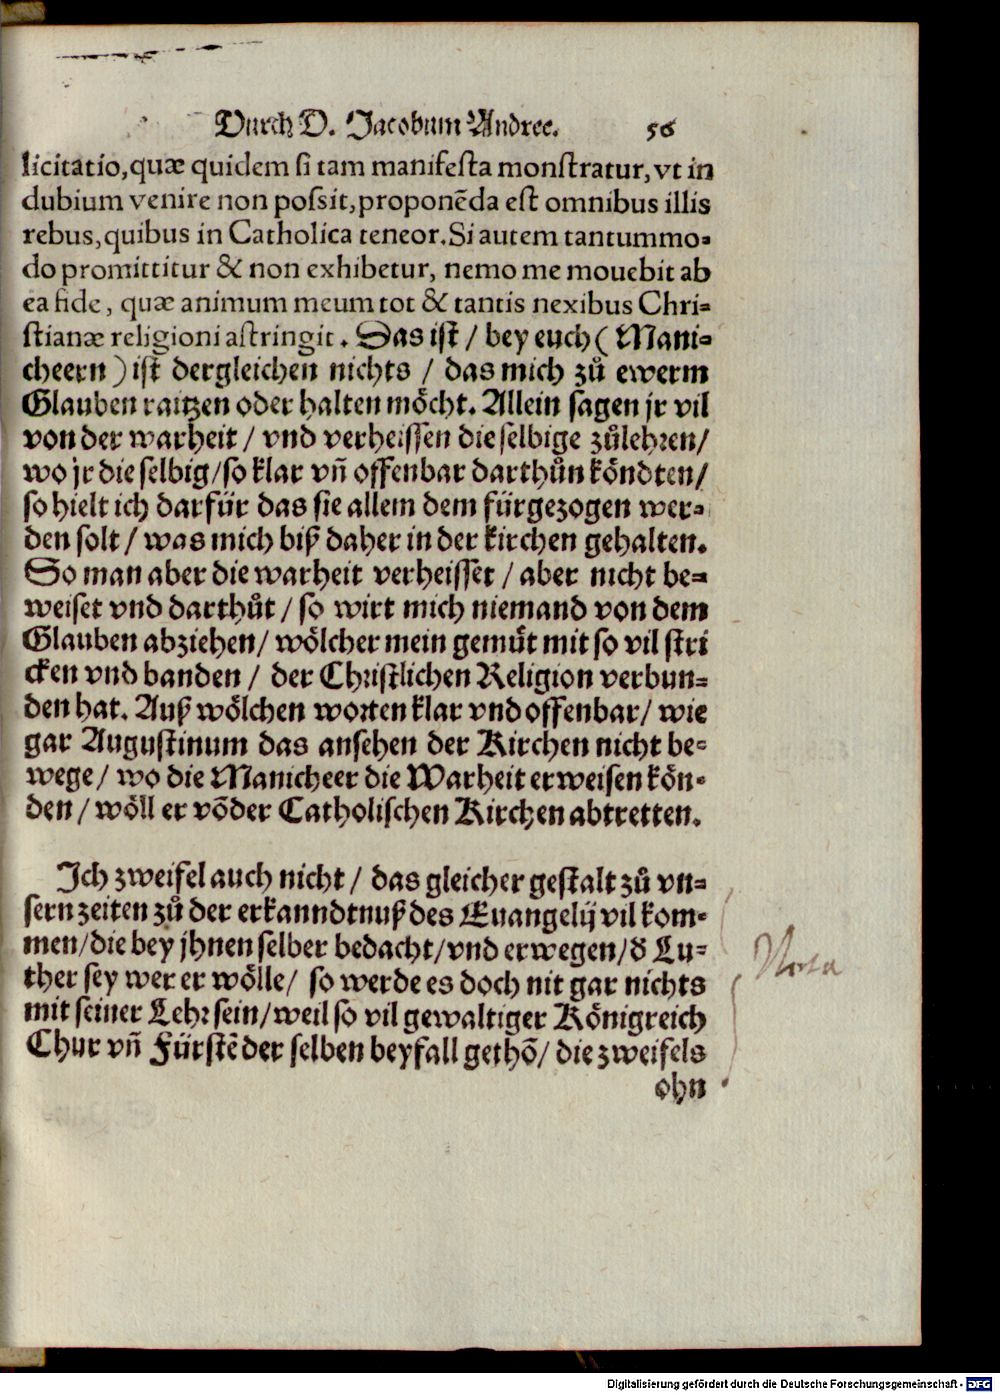 Durch D. Jacobum Andree. 56
licitatio, quæ quidem si tam manifesta monstratur, vt in
dubium venire non possit, proponēda est omnibus illis
rebus, quibus in Catholica teneor. Si autem tantummo-
do promittitur & non exhibetur, nemo me mouebit ab
ea fide, quæ animum meum tot & tantis nexibus Chri-
stianæ religioni astringit. Das ist / bey euch ( Mani-
cheern ) ist dergleichen nichts / das mich zů ewerm
Glauben raitzen oder halten möcht. Allein sagen jr vil
von der warheit / vnd verheissen die selbige zůlehren/
wo jr die selbig/ so klar vñ offenbar darthůn köndten/
so hielt ich darfür das sie allem dem fürgezogen wer-
den solt / was mich biß daher in der kirchen gehalten.
So man aber die warheit verheisset / aber nicht be-
weiset vnd darthůt / so wirt mich niemand von dem
Glauben abziehen/ wölcher mein gemůt mit so vil stri
cken vnd banden / der Christlichen Religion verbun-
den hat. Auß wölchen worten klar vnd offenbar/ wie
gar Augustinum das ansehen der Kirchen nicht be-
wege/ wo die Manicheer die Warheit erweisen kön-
den / wöll er võ der Catholischen Kirchen abtretten.
Ich zweifel auch nicht / das gleicher gestalt zů vn-
sern zeiten zů der erkanndtnuß des Euangelij vil kom-
men/ die bey jhnen selber bedacht/ vnd erwegen/ ď Lu-
ther sey wer er wölle/ so werde es doch nit gar nichts
mit seiner Lehr sein/ weil so vil gewaltiger Königreich
Chur vñ Fürstē der selben beyfall gethō/ die zweifels
ohn
Nota
Digitalisierung gefördert durch die Deutsche Forschungsgemeinschaft - DFG